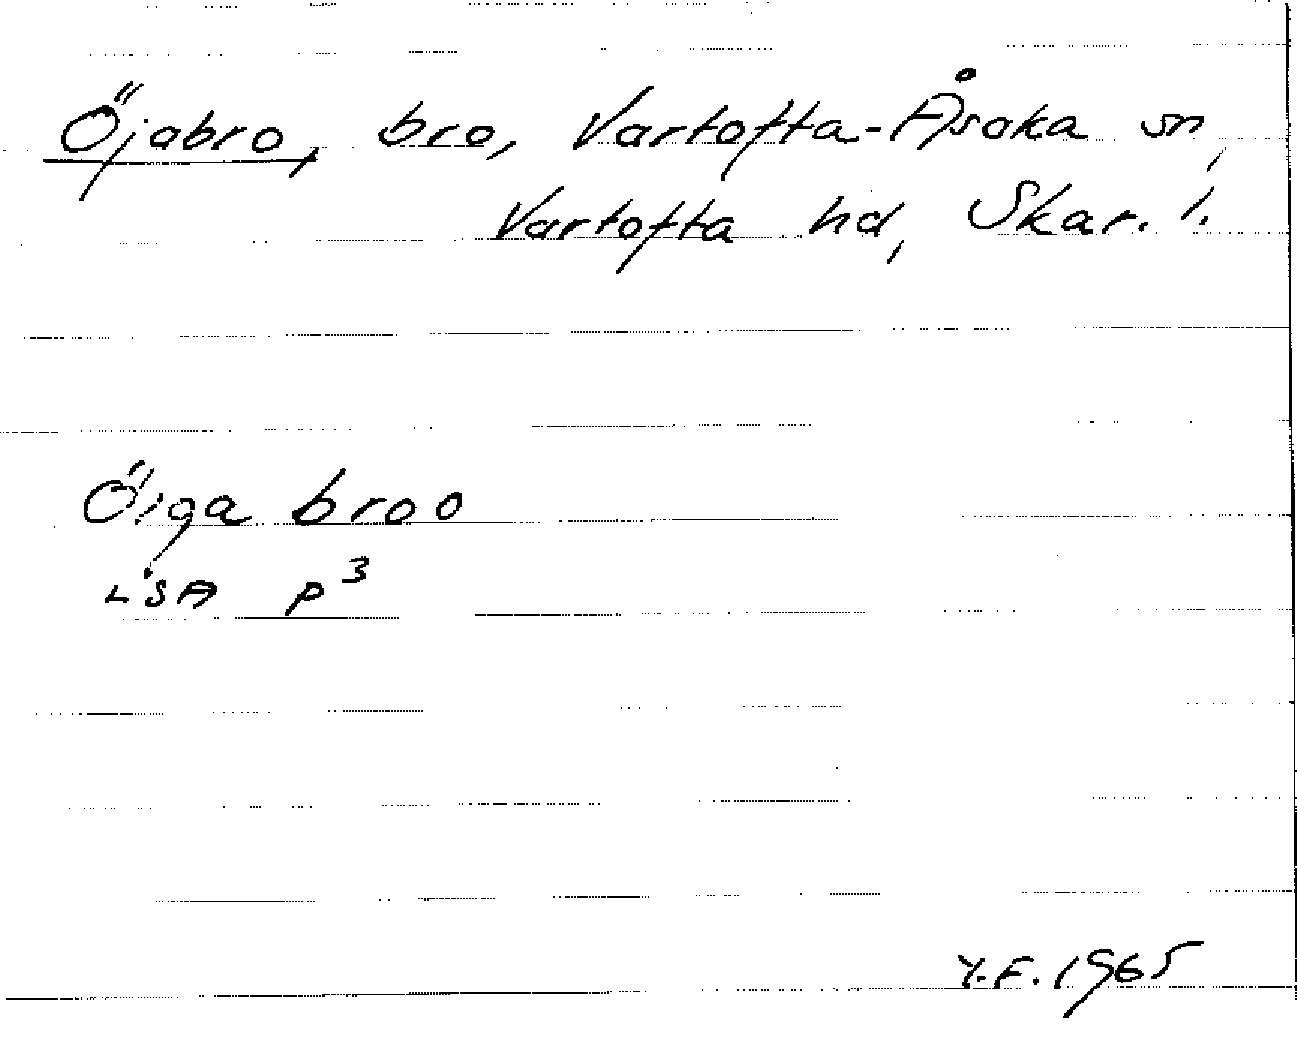 Öjabro, bro, Vartofta-Åsaka sn,
Vartofta hd, Skar. l.
Öiga broo
LSA P³
Y.F. 1965